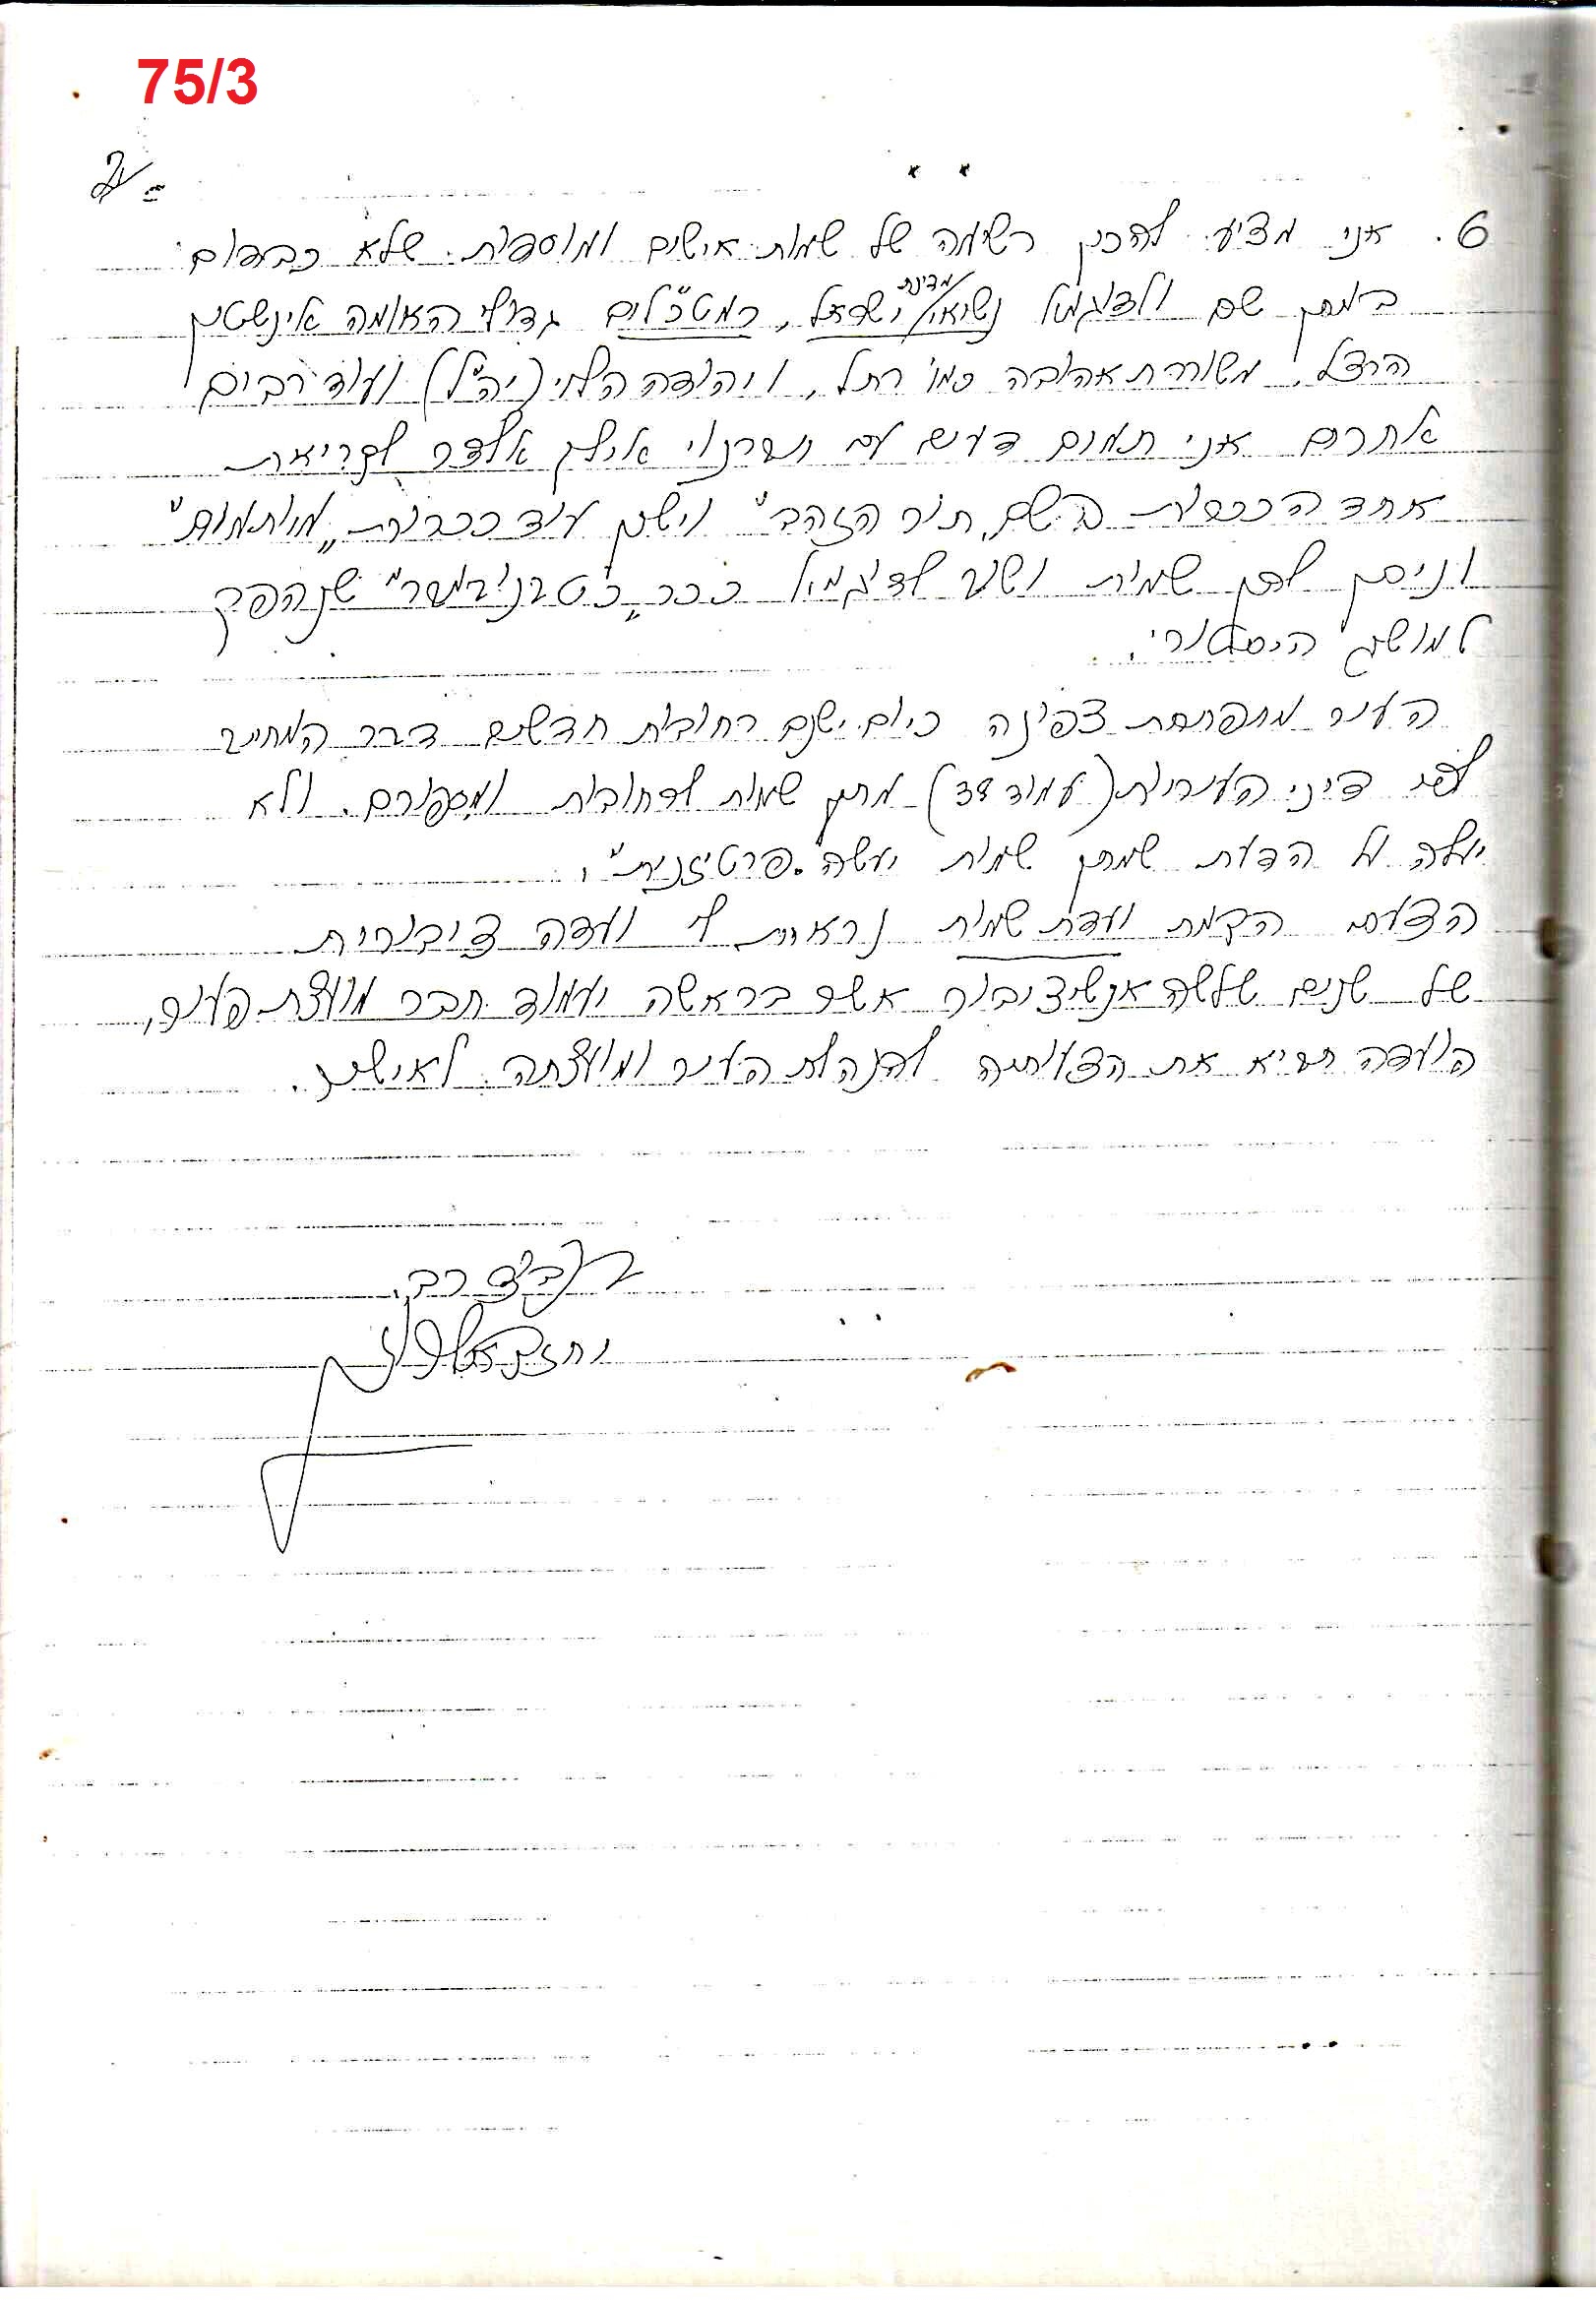 75/3
6. אני מציע להכין רשימה של שמות אישים ומוספית שלא כבעבר
במתן שם ולדוגמא נשיאי מדינת ישראל, רמטכ"לים גדולי האומה איינשטיין
הרצל, משוררת אהובה כמו רחל, ויהודה הלוי (יה"ל) ועוד רבים
אחרים אני תמים דעים עם אילן אלדר לקריאת
אחד הככרות בשם "תור הזהב" וישנן עוד ככרות "מיותמות"
וניתן להן שמות לדוגמא ככר "כ"ט בנובמבר" שנהפך
למושג היסטורי.
העיר מתפתחת צפונה כיום ישנם רחובות חדשים דבר המחייב
לפי דיני העיריות (עמוד 38) מתן שמות לרחובות ומספורם. ולא
יעלה על הדעת שמתן שמות יעשה "פרטיזנית".
הצעתי הקמת ועדת שמות נראית לי ועדה ציבורית
של שנים שלשה אנשי ציבור אשר בראשה יעמוד חבר מועצת העיר,
הועדה תביא את הצעותיה להנהלת העיר ומועצתה לאישור.
בכבוד רב,